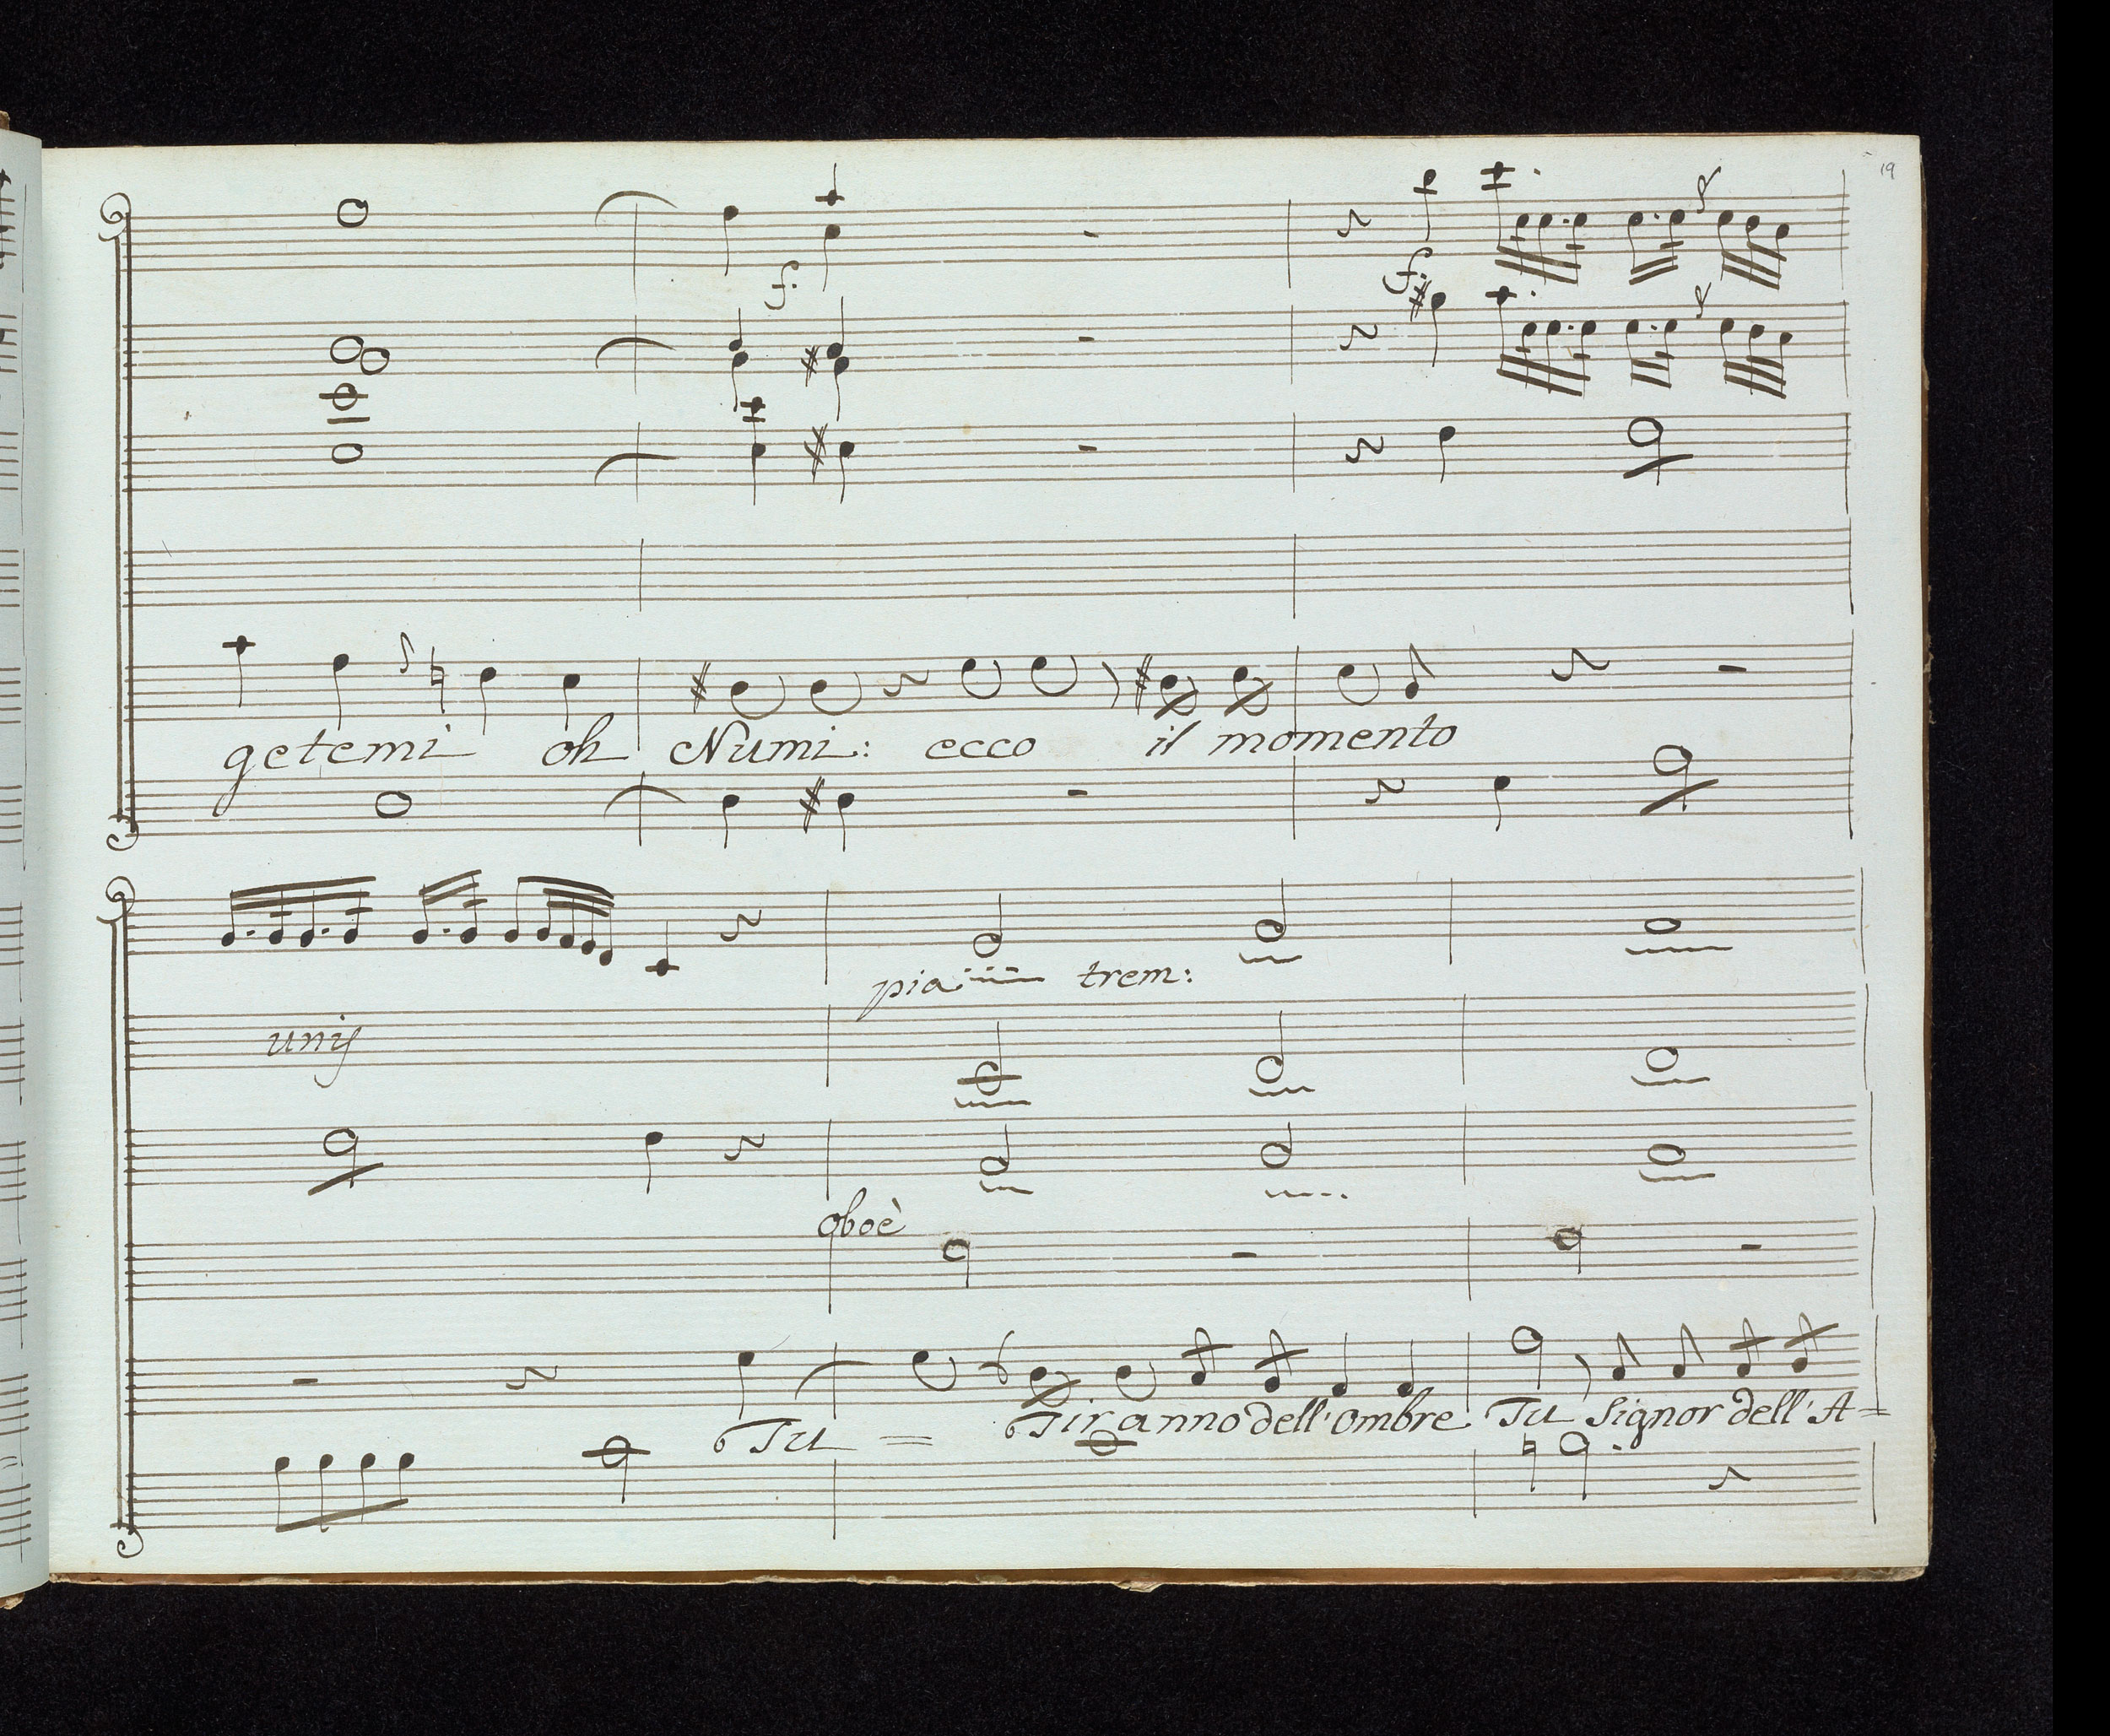 19
f.
f.
getemi oh Numi: ecco il momento
pia trem:
unis
oboè
Tu = Tiranno dell'ombre Tu Signor dell'A=